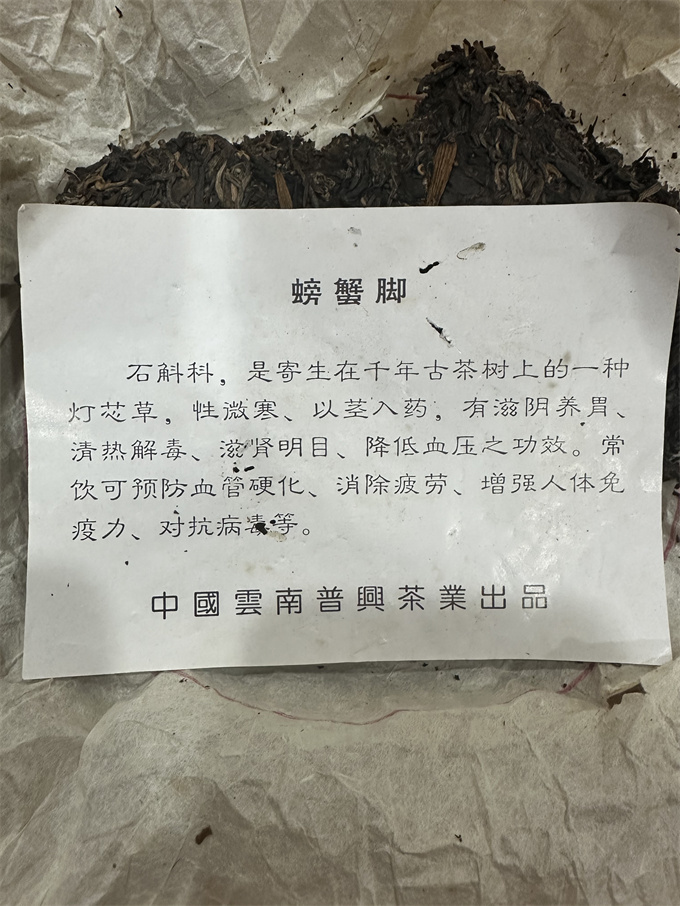 螃蟹脚
石斛科，是寄生在千年古茶树上的一种
灯芯草，性微寒、以茎入药，有滋阴养胃、
清热解毒、滋肾明目、降低血压之功效。常
饮可预防血管硬化、消除疲劳、增强人体免
疫力、对抗病毒等。
中國雲南普興茶業出品